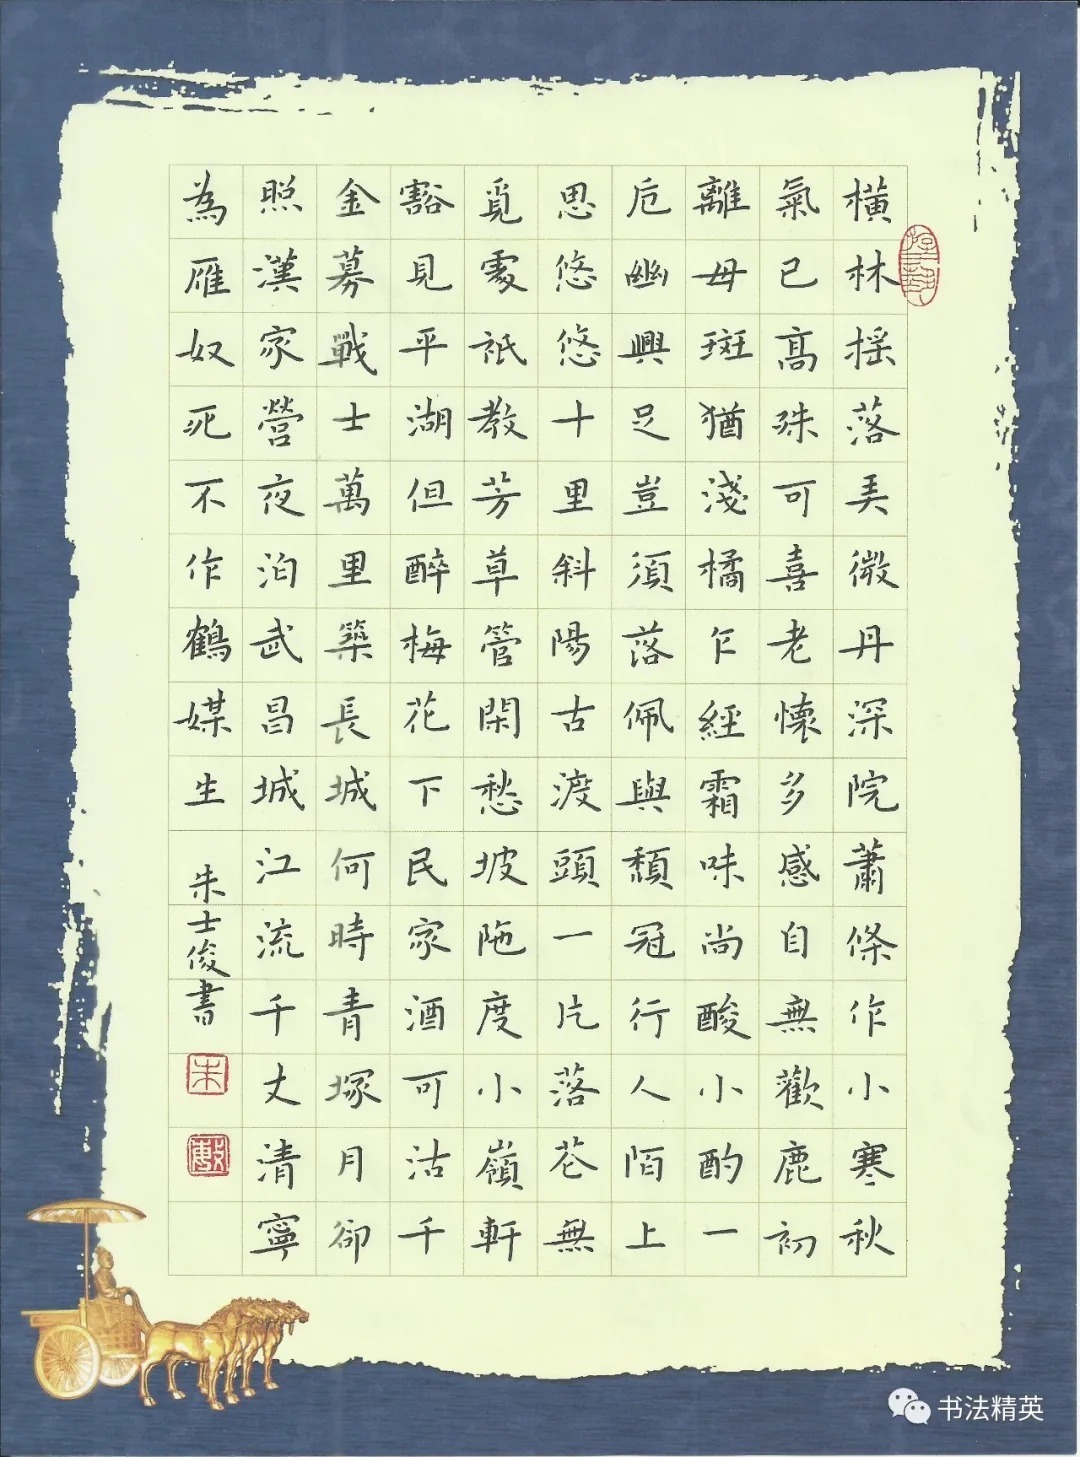 橫林揺落弄微丹深院蕭條作小寒秋
氣已髙殊可喜老懷多感自無歡鹿初
離母斑猶淺橘乍經霜味尚酸小酌一
卮幽興足豈須落佩與頹冠行人陌上
思悠悠十里斜陽古渡頭一片落花無
覓處祇教芳草管閑愁坡陁度小嶺軒
豁見平湖但醉梅花下民家酒可沽千
金募戰士萬里築長城何時青塚月卻
照漢家營夜泊武昌城江流千丈清寧
為雁奴死不作鶴媒生
朱士俊書
朱
书法精英